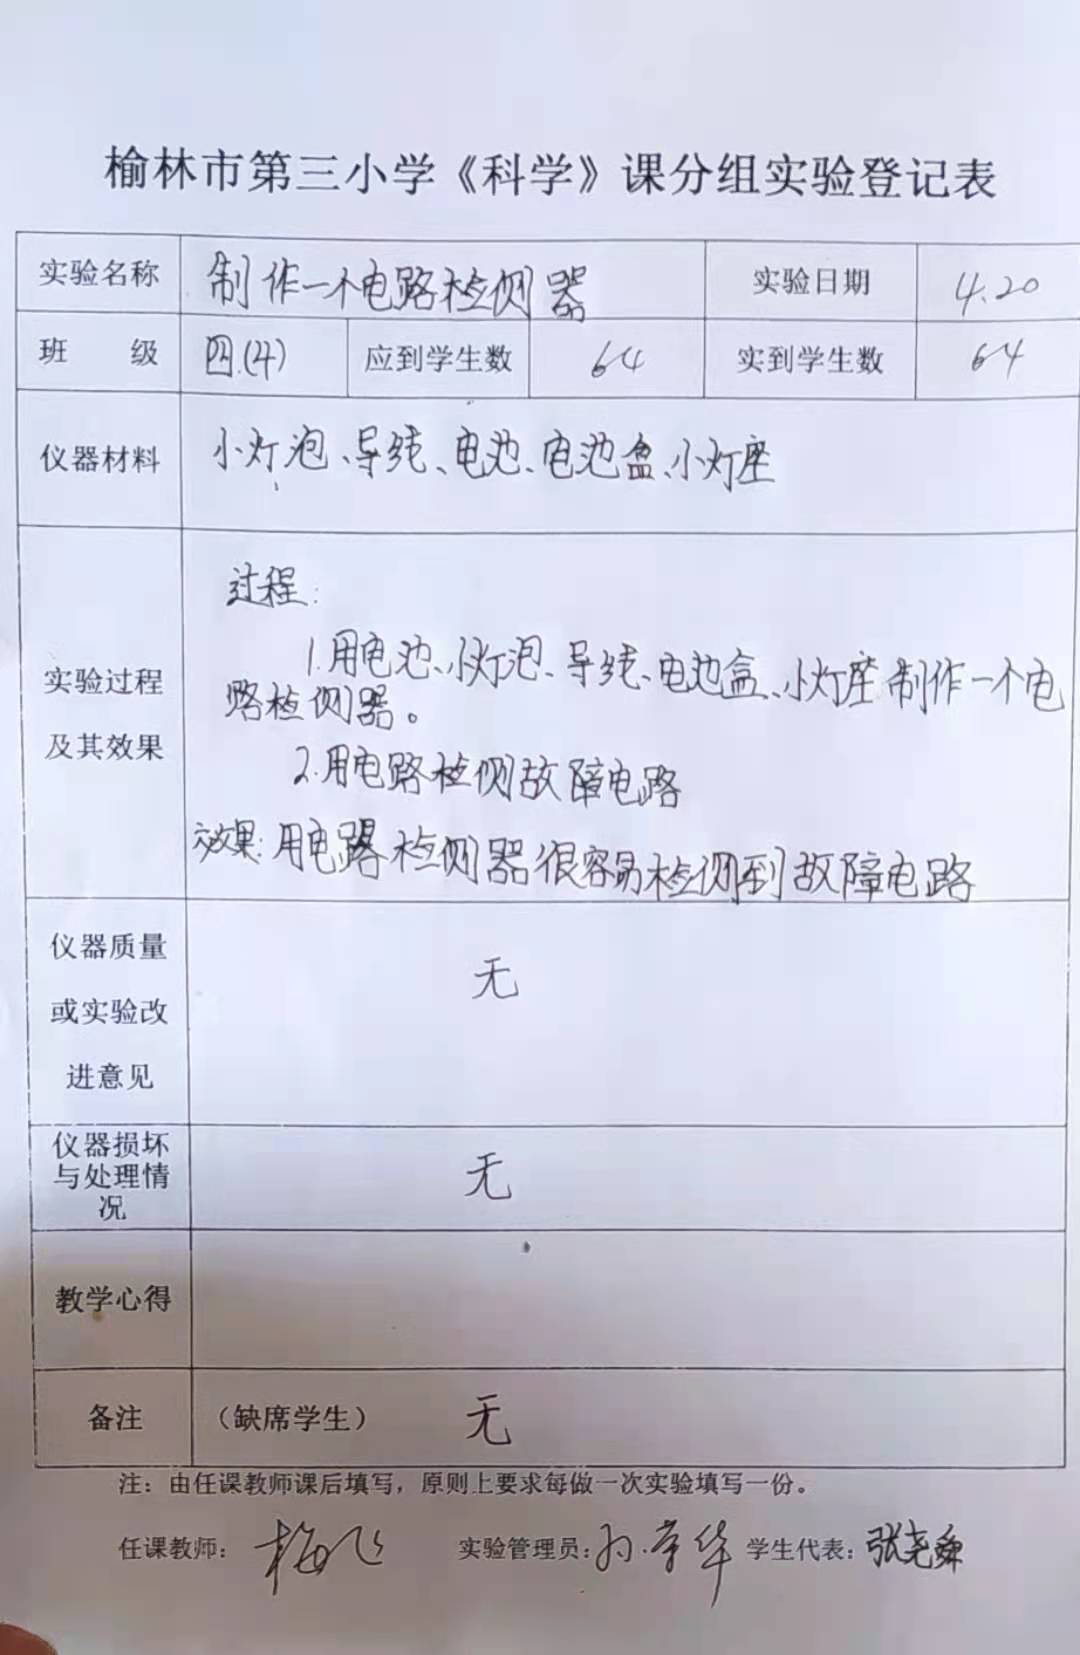 榆林市第三小学《科学》课分组实验登记表
实验名称 制作一个电路检测器 实验日期 4.20
班 级 四.(4) 应到学生数 64 实到学生数 64
仪器材料 小灯泡、导线、电池、电池盒、小灯座
过程:
1.用电池、小灯泡、导线、电池盒、小灯座制作一个电
路检测器。
实验过程
及其效果
2.用电路检测故障电路
效果:用电路检测器很容易检测到故障电路
仪器质量
或实验改
进意见
无
仪器损坏
与处理情
况
无
教学心得
备注 (缺席学生) 无
注:由任课教师课后填写,原则上要求每做一次实验填写一份。
任课教师: 梅飞 实验管理员: 学生代表: 张尧舜